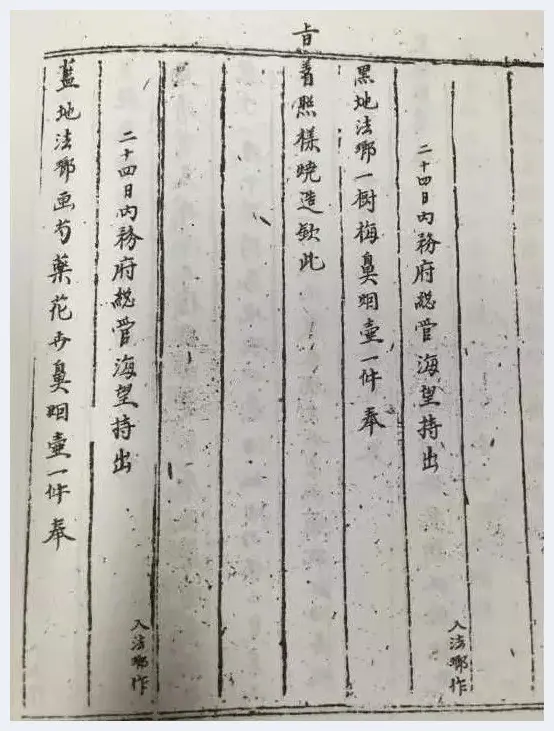 二十四日內務府緫管海望持出
入法瑯作
黑地法瑯一樹梅鼻烟壺一件奉
旨着照樣燒造欽此
二十四日內務府緫管海望持出
入法瑯作
藍地法瑯画芍藥花卉鼻烟壺一件奉